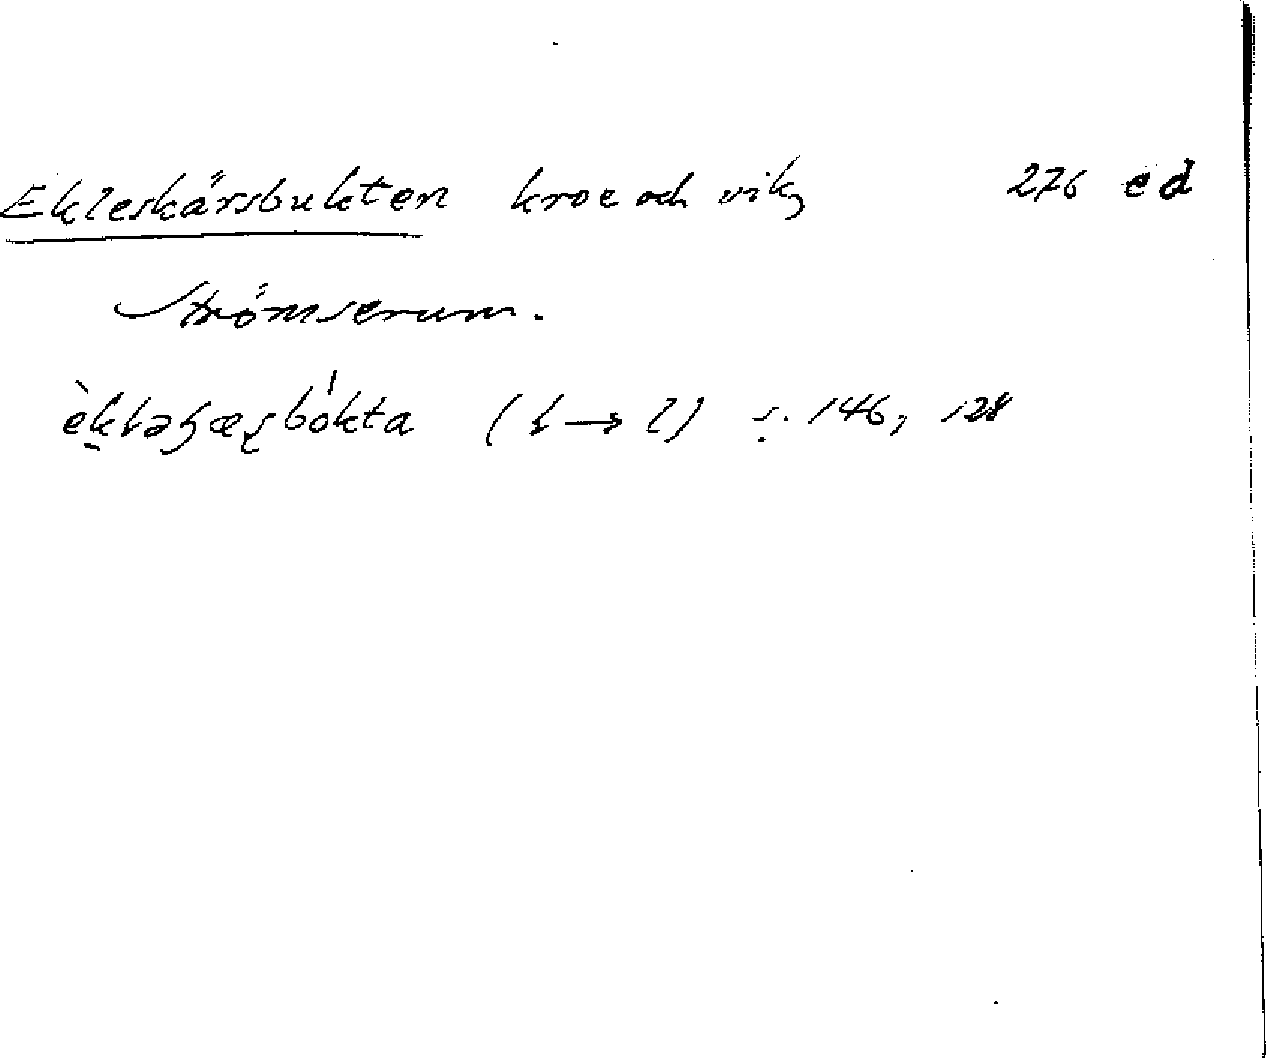 Ekleskärsbukten kroe och vik 276 ed
Strömserum.
(ł → l) s. 146, 128